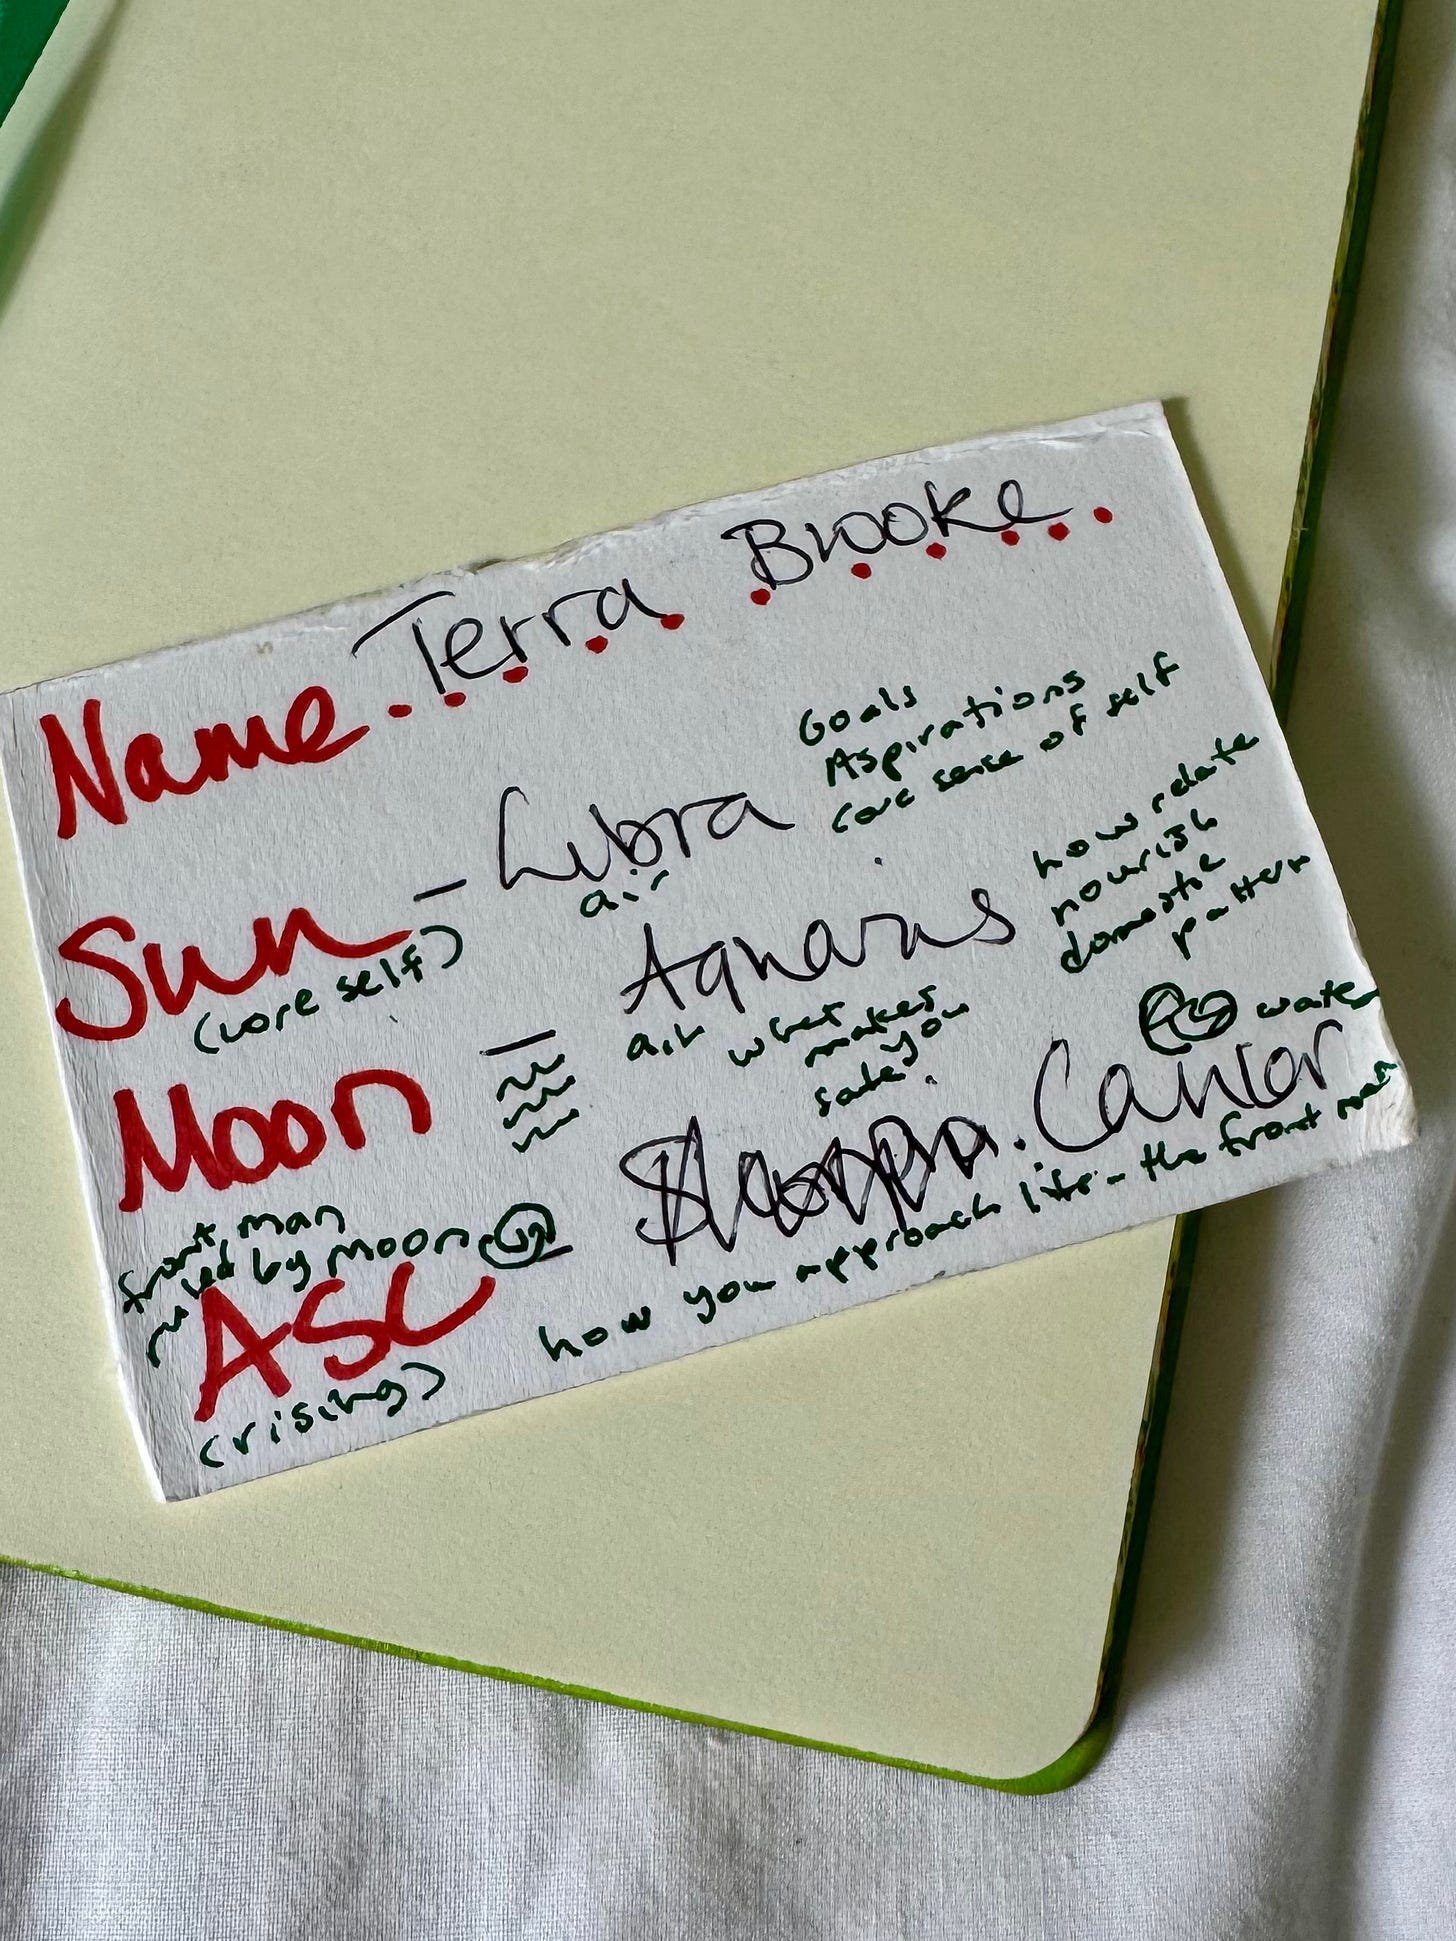 Name. Terra Brooke
Sun - Libra
(core self)
air
Goals
Aspirations
core sense of self
Moon - Aquarius
air what
makes
you
safe
how relate
nourish
domestic
pattern
front man
ruled by moon
ASC - . Cancer
(rising)
water
how you approach life - the front man